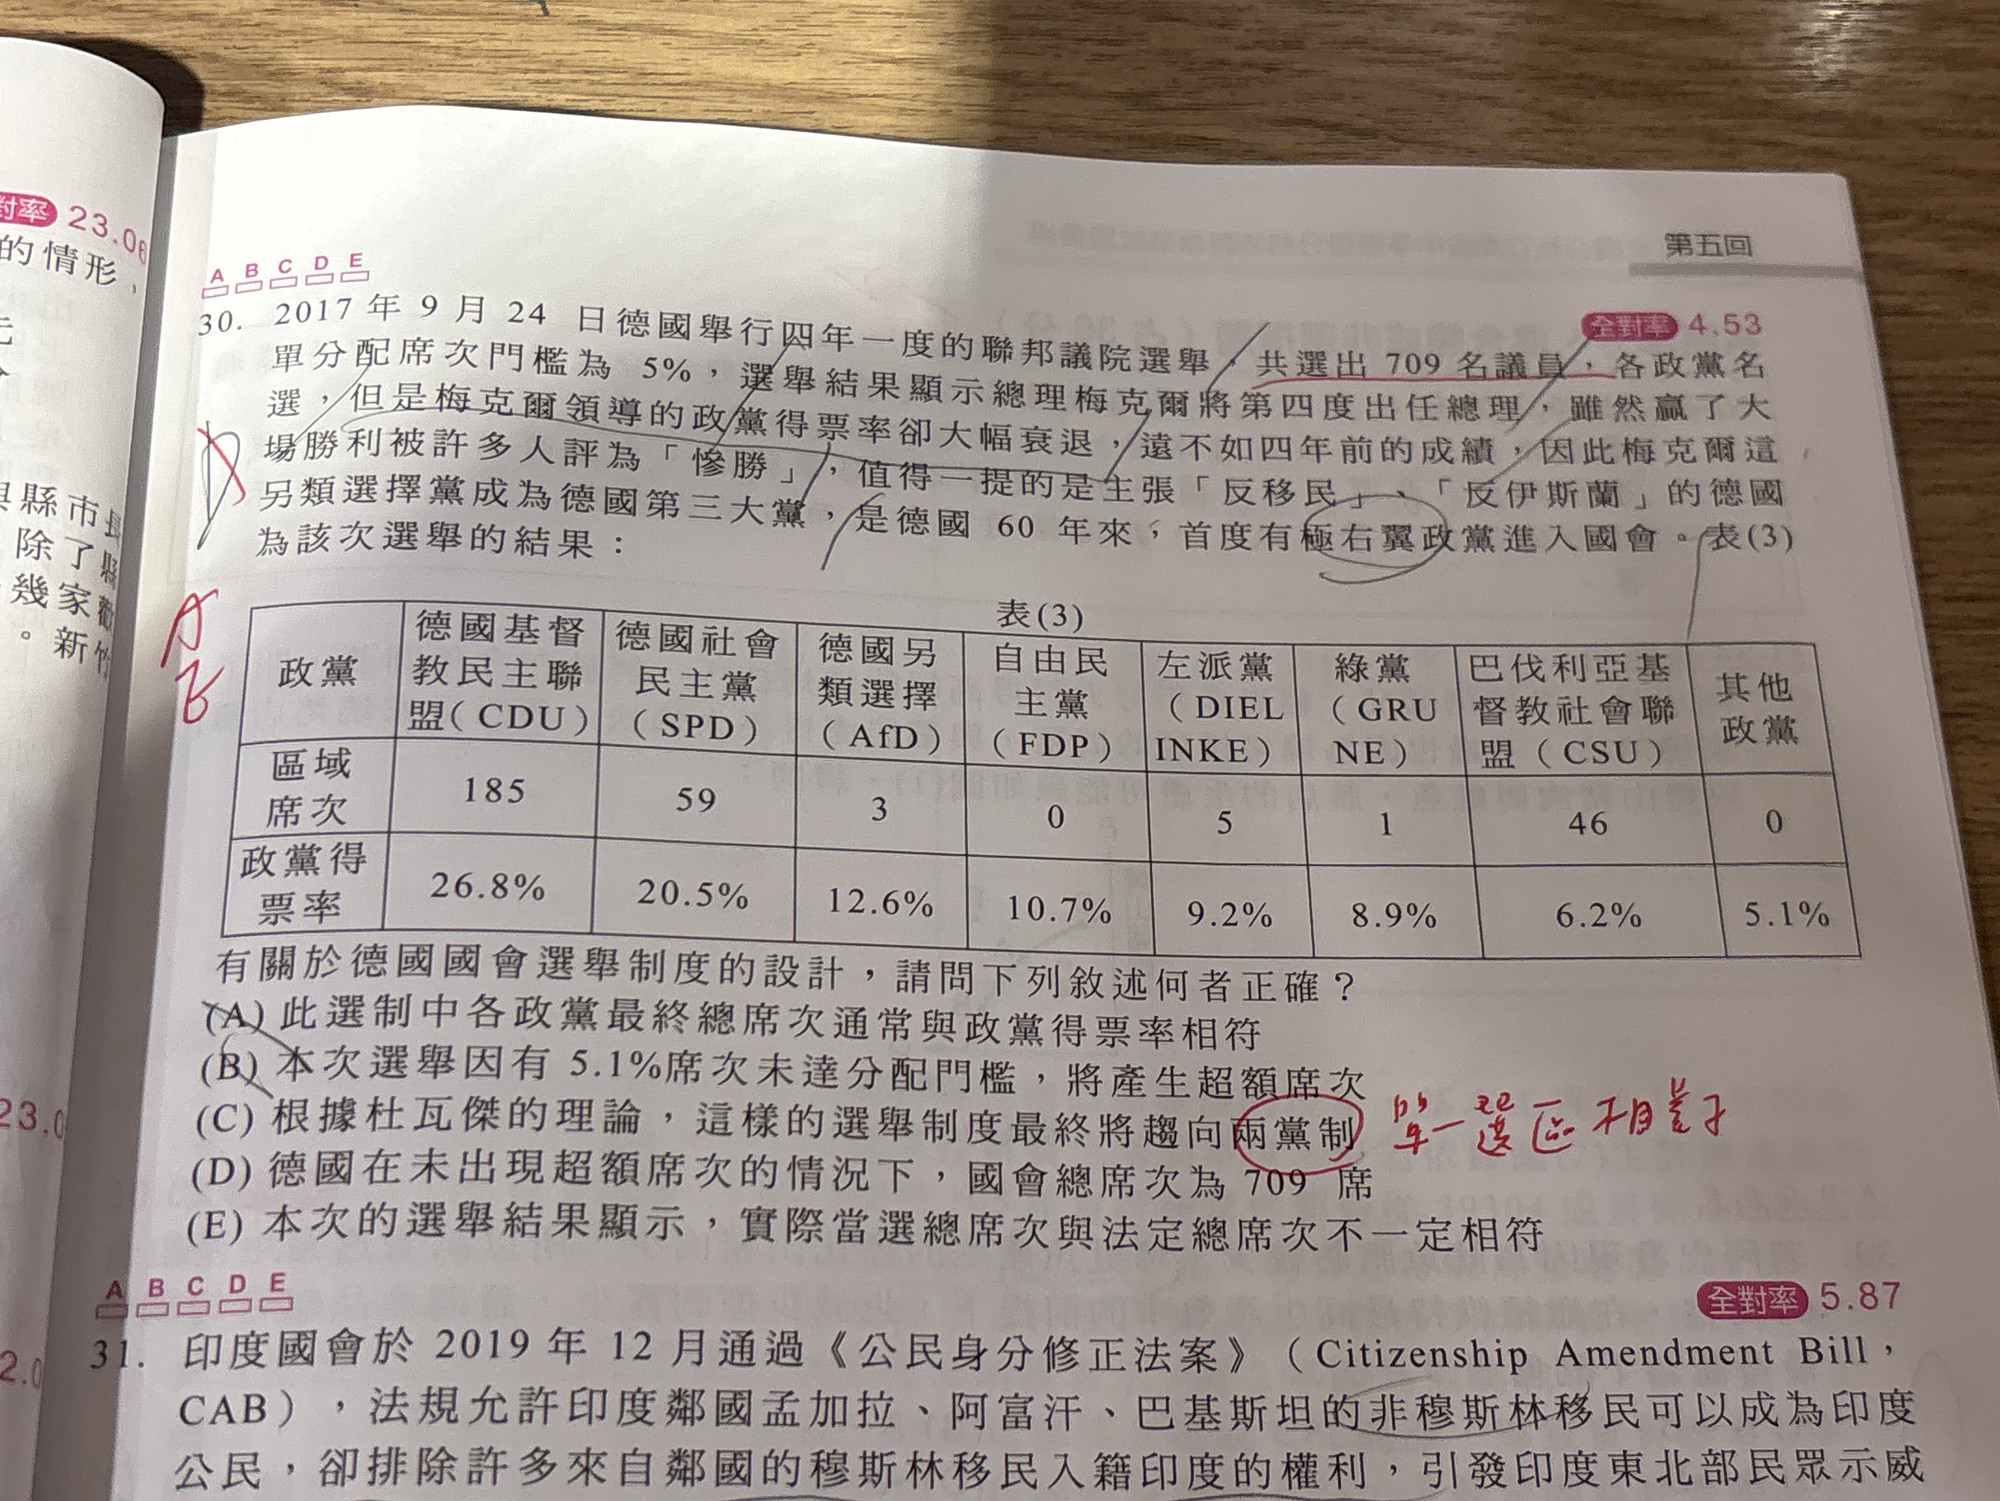 對率 23.06
的情形，
與縣市長
除了縣
幾家歡
。新竹
23.0
2.0
第五回
A B C D E
全對率 4.53
30. 2017 年 9 月 24 日德國舉行四年一度的聯邦議院選舉，共選出 709 名議員，各政黨名
單分配席次門檻為 5%，選舉結果顯示總理梅克爾將第四度出任總理，雖然贏了大
選，但是梅克爾領導的政黨得票率卻大幅衰退，遠不如四年前的成績，因此梅克爾這
場勝利被許多人評為「慘勝」，值得一提的是主張「反移民」、「反伊斯蘭」的德國
另類選擇黨成為德國第三大黨，是德國 60 年來，首度有極右翼政黨進入國會。表(3)
為該次選舉的結果：
A
E
表(3)
政黨 德國基督教民主聯盟(CDU) 德國社會民主黨(SPD) 德國另類選擇(AfD) 自由民主黨(FDP) 左派黨(DIELINKE) 綠黨(GRUNE) 巴伐利亞基督教社會聯盟(CSU) 其他政黨
區域席次 185 59 3 0 5 1 46 0
政黨得票率 26.8% 20.5% 12.6% 10.7% 9.2% 8.9% 6.2% 5.1%
有關於德國國會選舉制度的設計，請問下列敘述何者正確？
(A) 此選制中各政黨最終總席次通常與政黨得票率相符
(B) 本次選舉因有 5.1%席次未達分配門檻，將產生超額席次
(C) 根據杜瓦傑的理論，這樣的選舉制度最終將趨向兩黨制 單一選區相對
(D) 德國在未出現超額席次的情況下，國會總席次為 709 席
(E) 本次的選舉結果顯示，實際當選總席次與法定總席次不一定相符
A B C D E
全對率 5.87
31. 印度國會於 2019 年 12 月通過《公民身分修正法案》（Citizenship Amendment Bill，
CAB），法規允許印度鄰國孟加拉、阿富汗、巴基斯坦的非穆斯林移民可以成為印度
公民，卻排除許多來自鄰國的穆斯林移民入籍印度的權利，引發印度東北部民眾示威